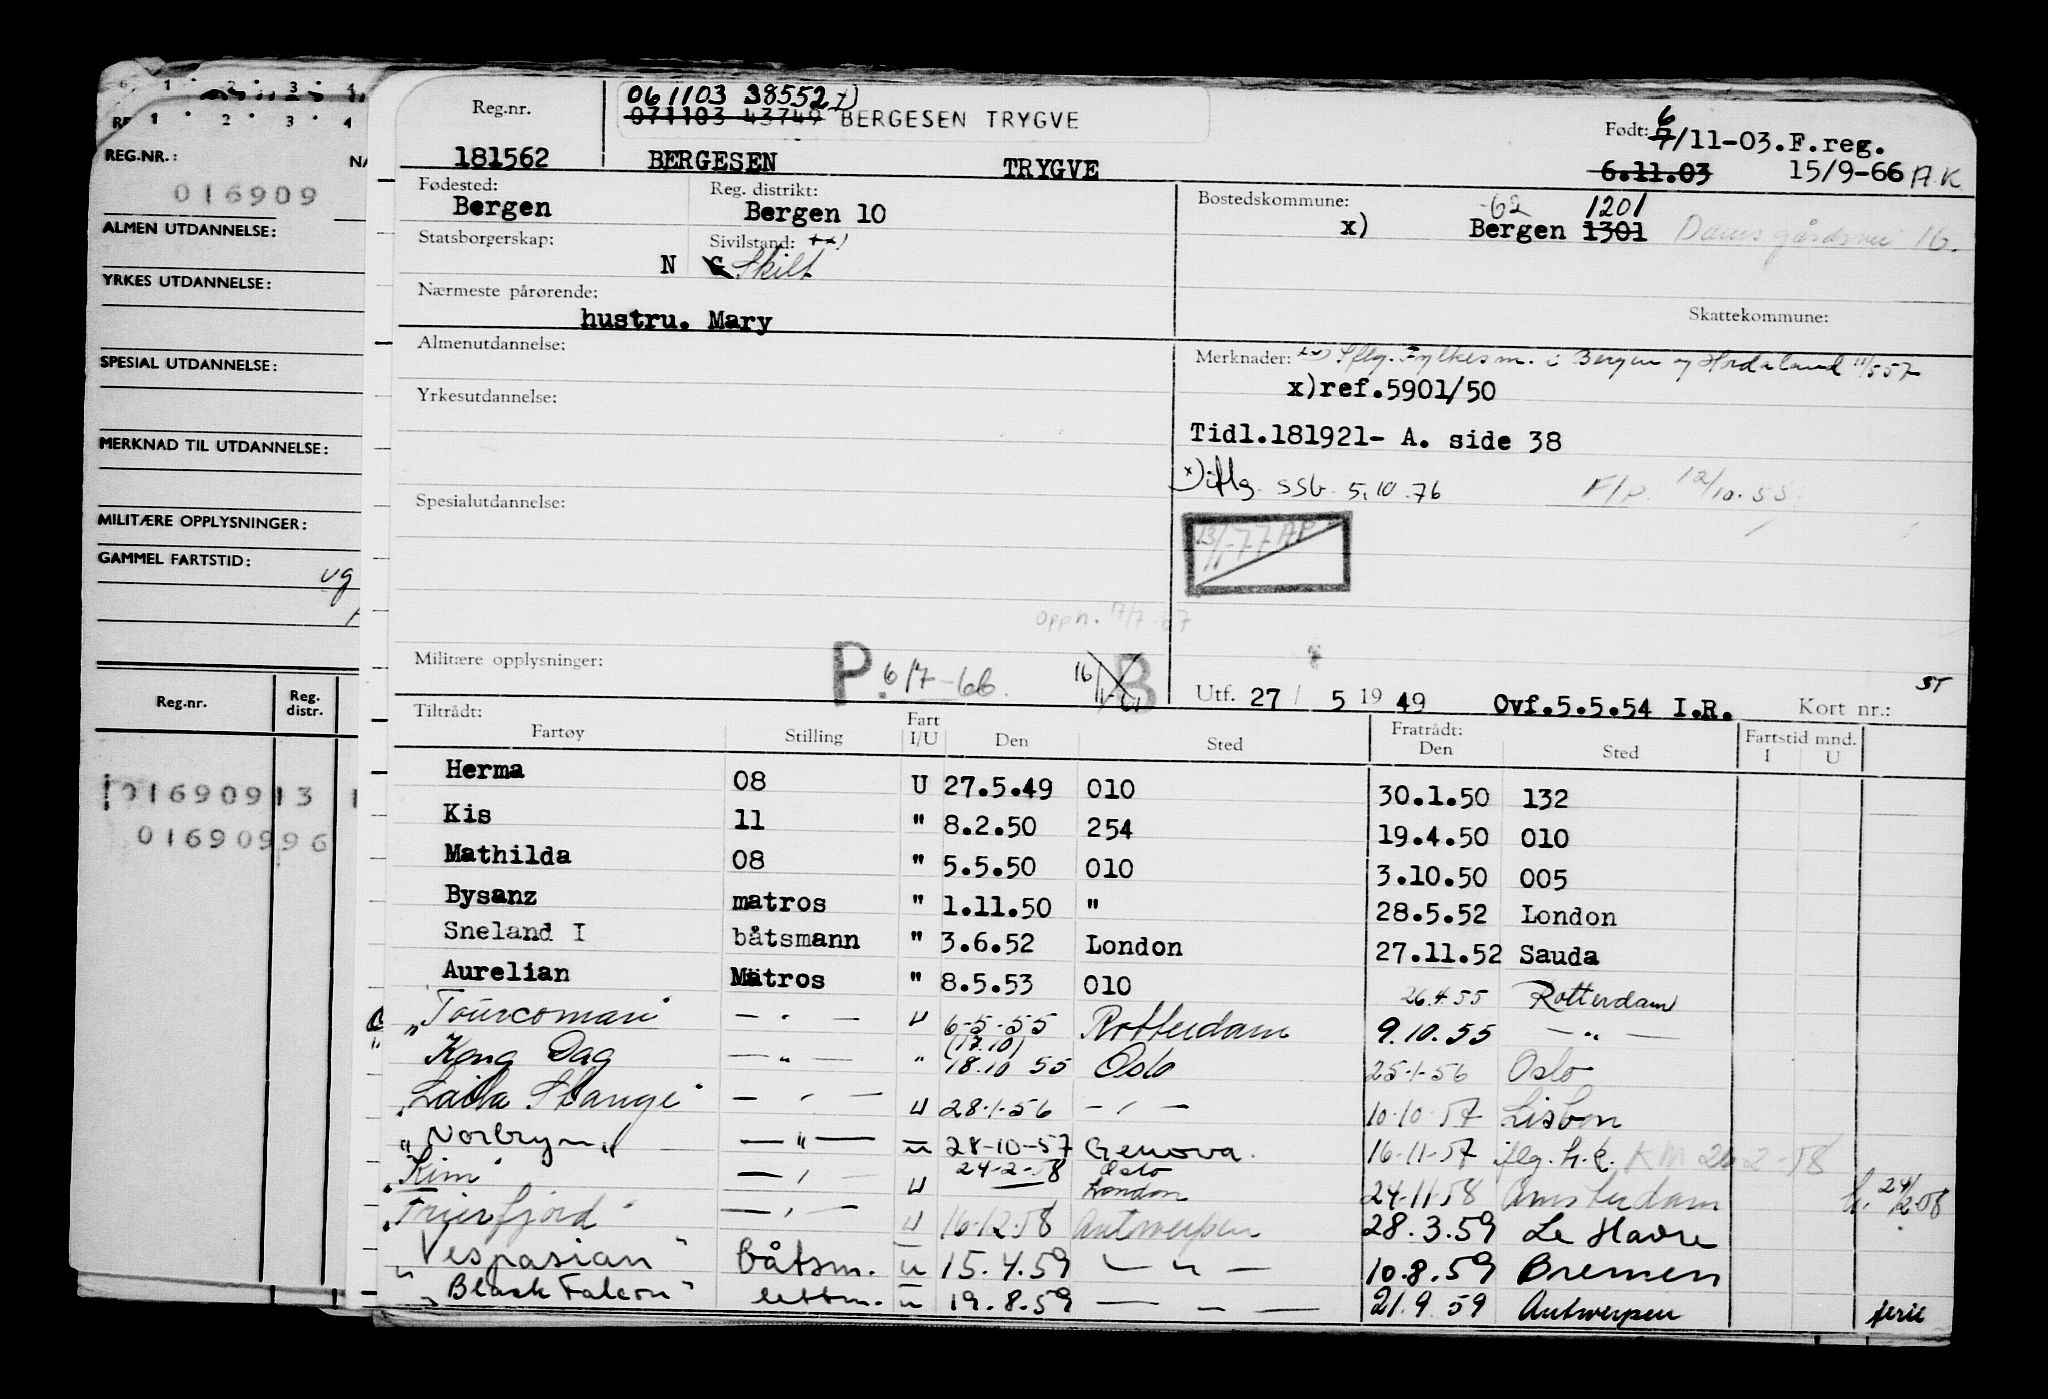 1 2 3 4
1 2 3 4
REG.NR.:
016909
ALMEN UTDANNELSE:
YRKES UTDANNELSE:
SPESIAL UTDANNELSE:
MERKNAD TIL UTDANNELSE:
MILITÆRE OPPLYSNINGER:
GAMMEL FARTSTID:
ug
Reg.nr. Reg. distr.
01690913
01690996
Reg.nr. 061103 38552
071103 43749 BERGESEN TRYGVE
Født: 6
7/11-03.F.reg.
181562 BERGESEN TRYGVE 6.11.03 15/9-66 A.K.
Fødested: Reg. distrikt: Bostedskommune: -62 1201
Bergen Bergen 10 x) Bergen 1301 Damsgårdsvei 16.
Statsborgerskap: Sivilstand: xx)
N G Skilt
Nærmeste pårørende: Skattekommune:
hustru. Mary
Almenutdannelse: Merknader: xx) Iflg. Fylkesm. i Bergen og Hordaland 11/5 57
x)ref.5901/50
Yrkesutdannelse:
Tidl.181921- A. side 38
x) iflg. SSB 5.10.76 F/p. 12/10.55.
Spesialutdannelse:
13/11-77 AP
Opph. 17/7-67
Militære opplysninger: P. 6/7-66. 16/1-61 B Utf. 27/ 5 1949 Ovf.5.5.54 I.R. Kort nr.: ST
Tiltrådt: Fratrådt: Fartstid mnd.
Fartøy Stilling Fart I/U Den Sted Den Sted I U
Herma 08 U 27.5.49 010 30.1.50 132
Kis 11 " 8.2.50 254 19.4.50 010
Mathilda 08 " 5.5.50 010 3.10.50 005
Bysanz matros " 1.11.50 " 28.5.52 London
Sneland I båtsmann " 3.6.52 London 27.11.52 Sauda
Aurelian Matros " 8.5.53 010 26.4.55 Rotterdam
"Tourcomari" — " — U 6-5-55 Rotterdam 9.10.55 — " —
"Kong Dag — " — " (17.10) 18.10 55 Oslo 25-1-56 Oslo
"Laila Stange" — " — U 28-1-56 — " — 10-10-57 Lisbon
"Norbryn" — " — U 28-10-57 Genova. 16-11-57 iflg. h.k. KM 26-2-58
"Kim" — " — U 24-2-58 Oslo London 24-11-58 Amsterdam h. 24/2-58
"Frierfjord" — " — U 16-12-58 Antwerpen 28.3.59 Le Havre
"Vespasian" båtsm. U 15.4.59 — " — 10.8.59 Bremen
"Black Falcon" lettm. U 19.8.59 — " — 21.9.59 Antwerpen ferie